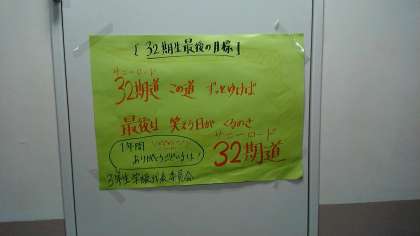 〖32期生最後の目標〗
サニーロード
32期道 この道 ずっとゆけば
最後は 笑える日が くるのさ
1年間
ありがとうございました!
サニーロード
32期道
3年生学級代表委員会